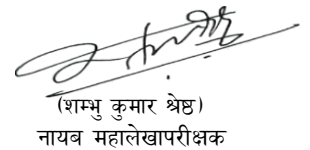 (शम्भु कुमार श्रेष्ठ)
नायब महालेखापरीक्षक